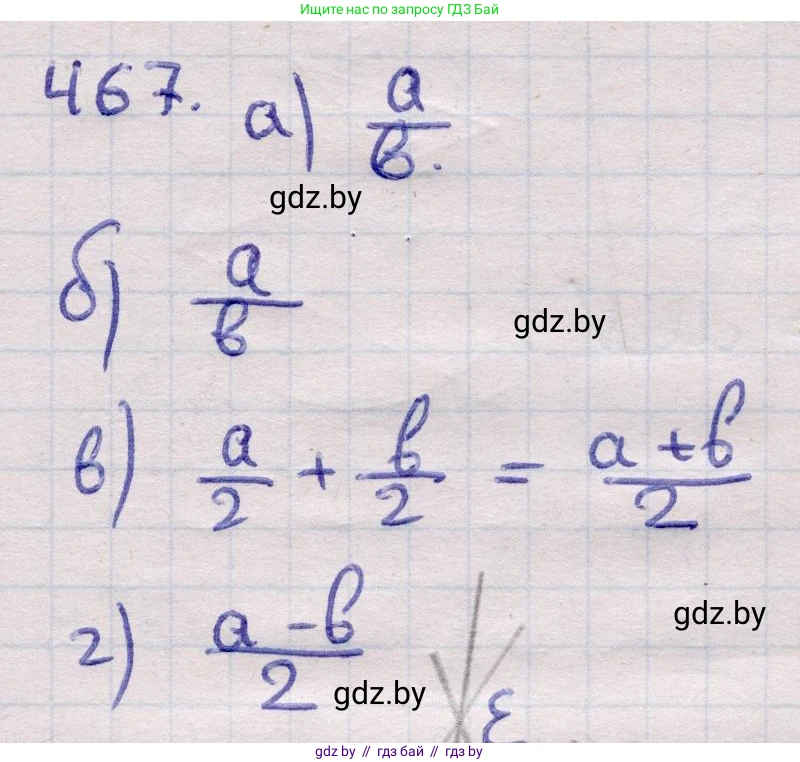 Ищите нас по запросу ГДЗ Бай
467. а) a/b.
gdz.by
б) a/b
gdz.by
в) a/2 + b/2 = (a+b)/2
gdz.by
г) (a-b)/2
gdz.by
gdz.by // гдз бай // гдз by